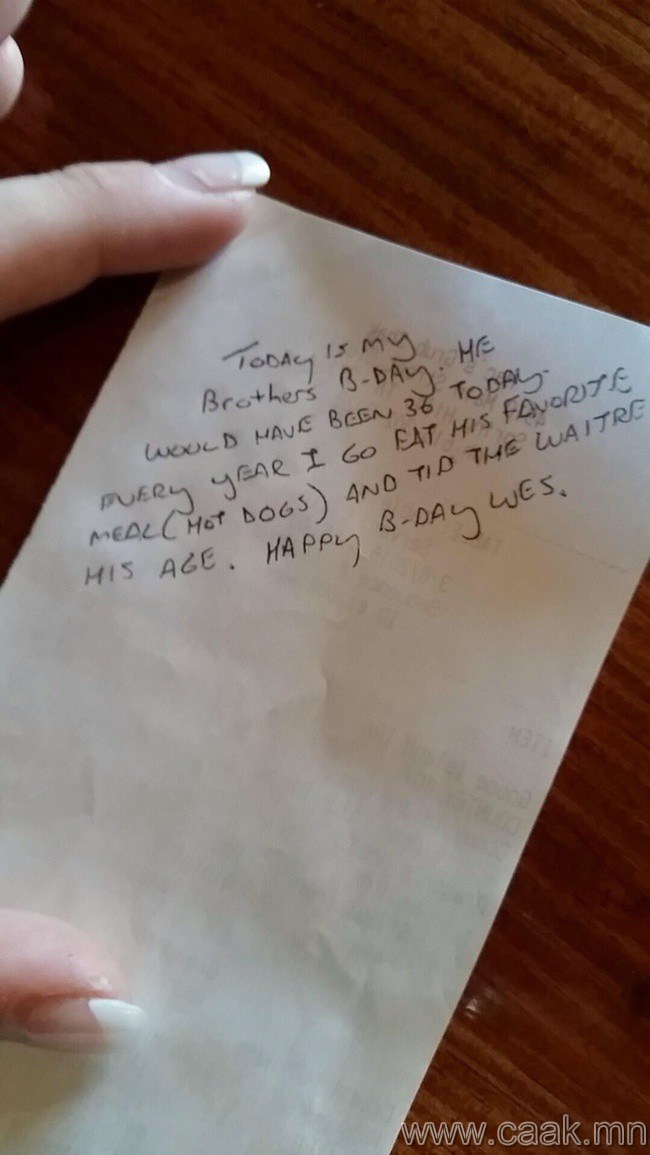 TODAY IS MY
BROTHERS B-DAY. HE
WOULD HAVE BEEN 36 TODAY.
EVERY YEAR I GO EAT HIS FAVORITE
MEAL (HOT DOGS) AND TIP THE WAITRE
HIS AGE. HAPPY B-DAY WES.
ITEM
www.caak.mn